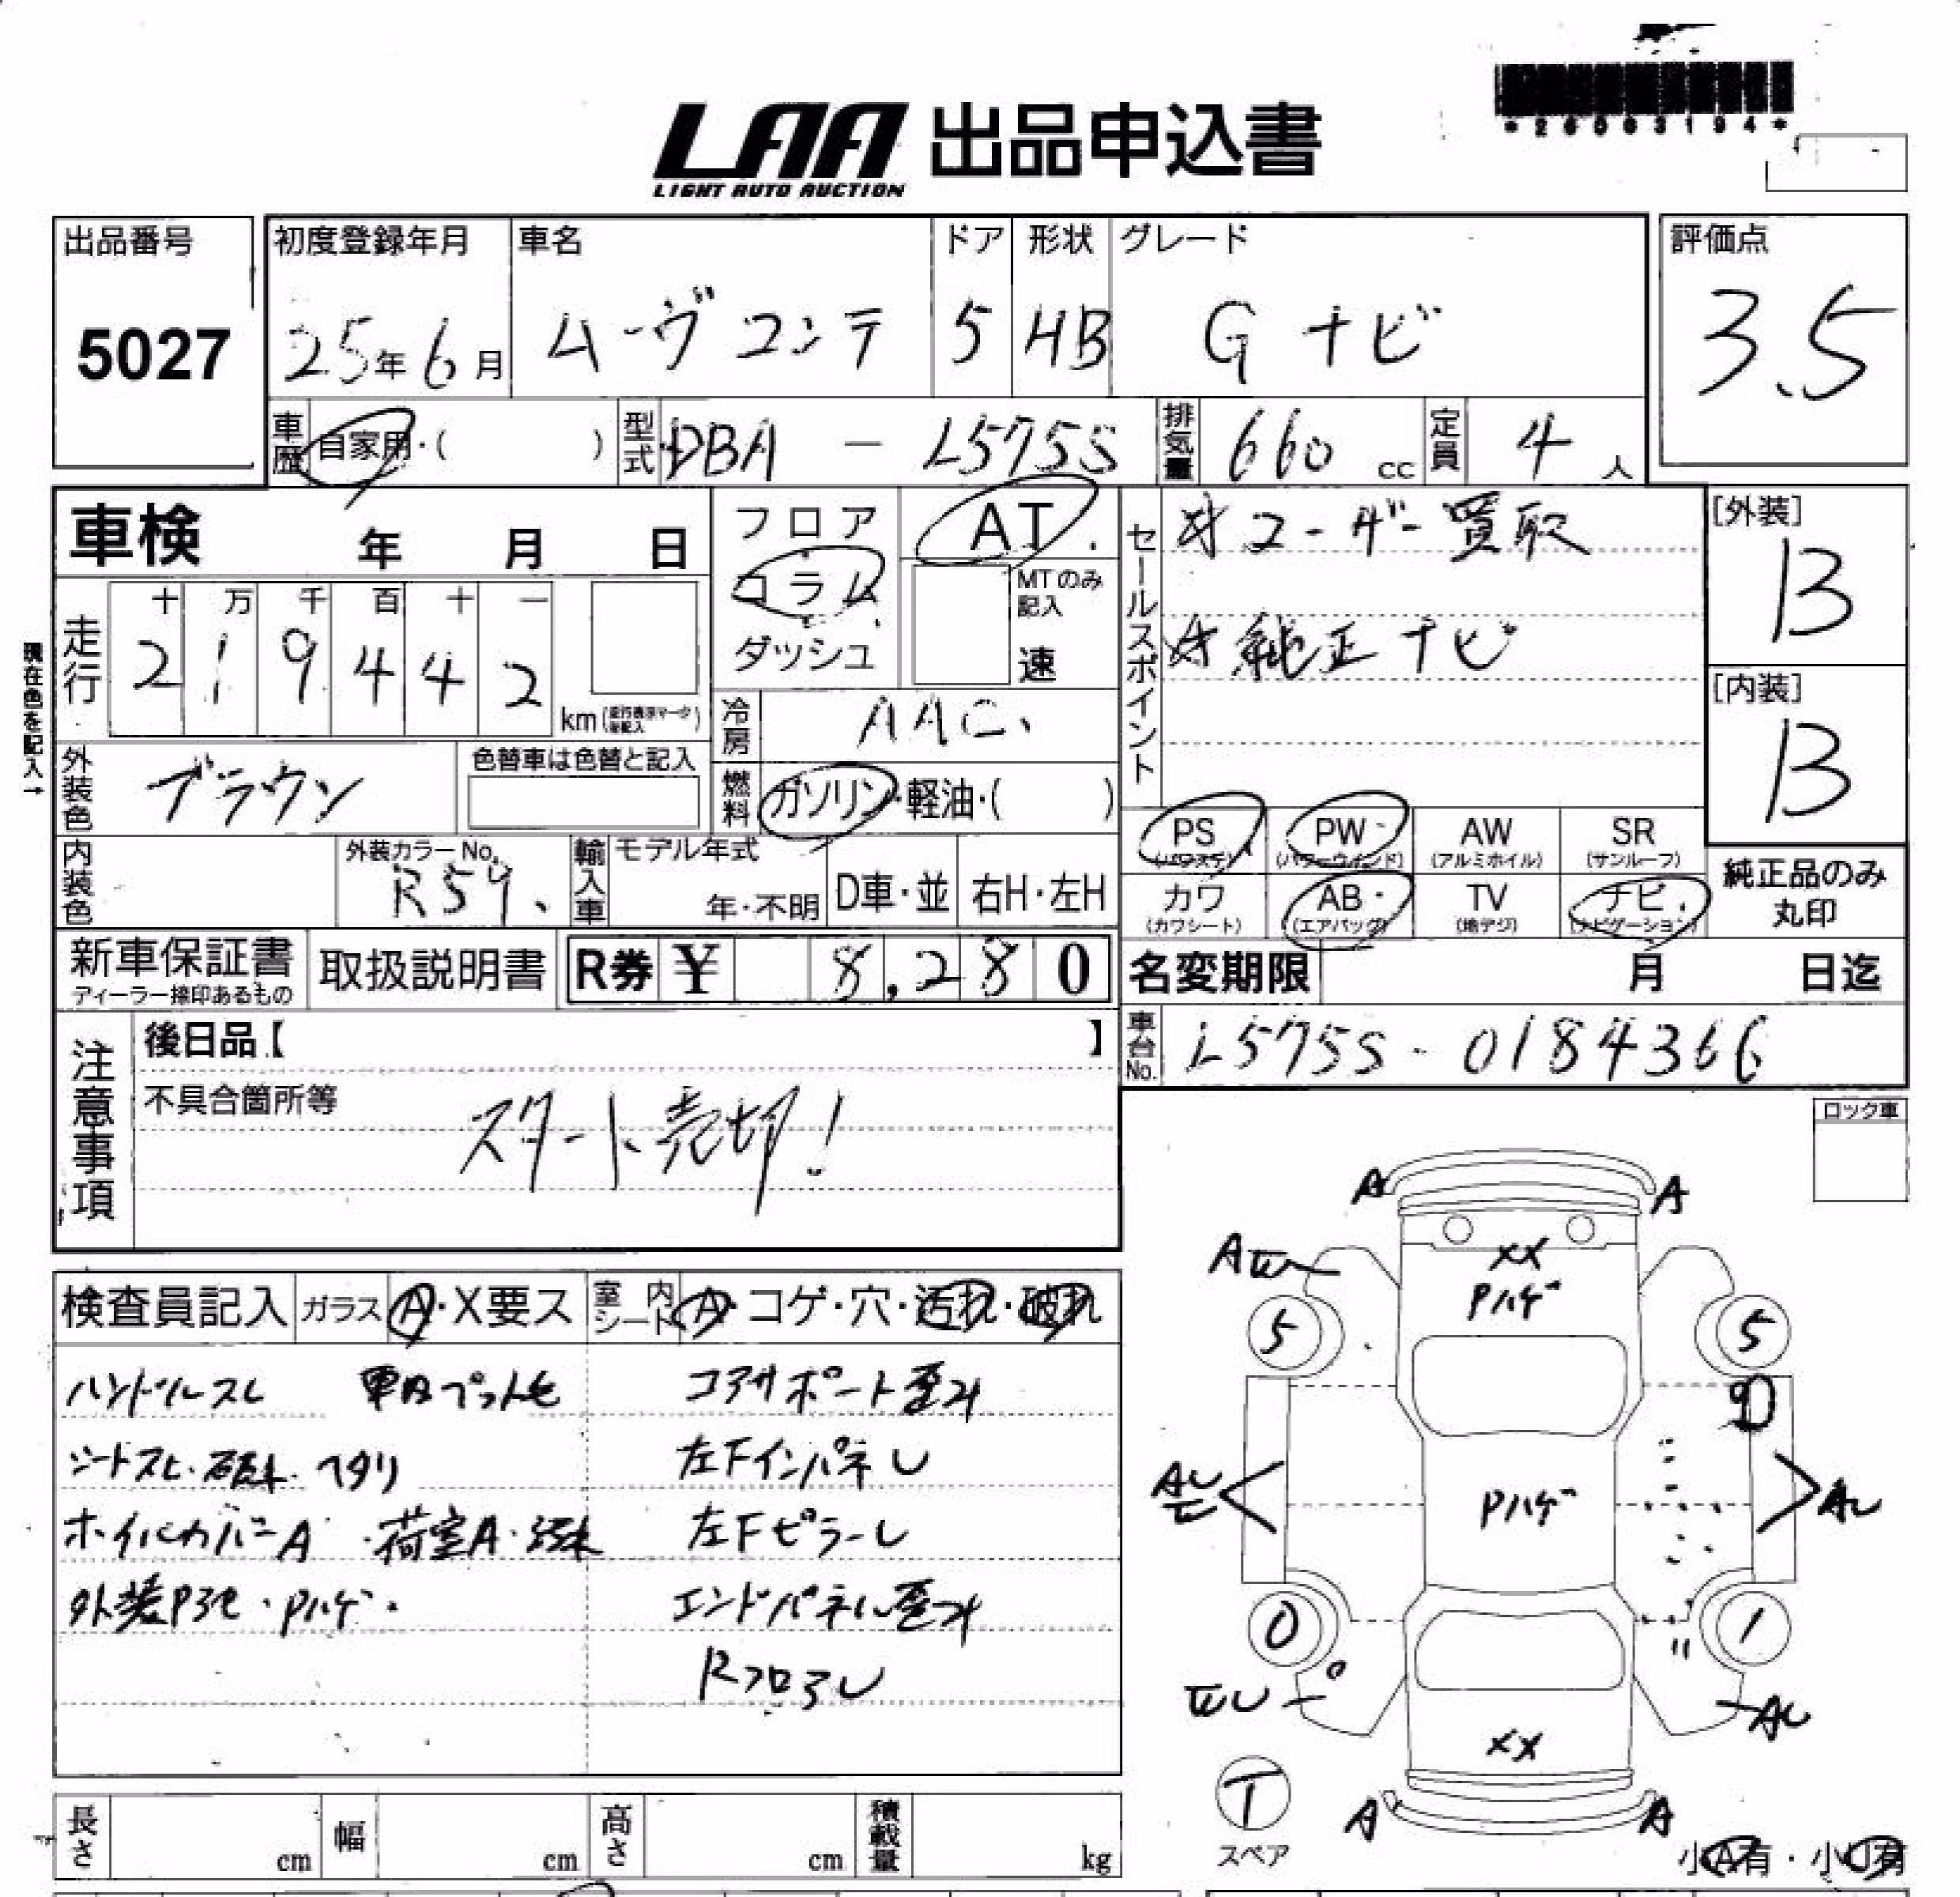 *26063194*
LAA 出品申込書
LIGHT AUTO AUCTION
出品番号 初度登録年月 車名 ドア 形状 グレード 評価点
5027 25年6月 ムーヴコンテ 5 HB G ナビ 3.5
車歴 自家用・( ) 型式 DBA - L575S 排気量 660 cc 定員 4 人
車検 年 月 日 フロア AT セールスポイント オユーザー買取 [外装]
コラム MTのみ記入 B
十 万 千 百 十 一
走行 2 1 9 4 4 2 km ダッシュ 速 純正ナビ
現在色を記入→
[内装]
冷房 AAC B
外装色 ブラウン 色替車は色替と記入 燃料 ガソリン・軽油・( )
PS PW AW SR
(パワステ) (パワーウインド) (アルミホイル) (サンルーフ)
内装色 外装カラーNo. R59 輸入車 モデル年式 年・不明 D車・並 右H・左H
カワ AB TV ナビ 純正品のみ
(カワシート) (エアバッグ) (地デジ) (ナビゲーション) 丸印
新車保証書 取扱説明書 R券 ¥ 8,280 名変期限 月 日迄
ディーラー捺印あるもの
注意事項 後日品【 】 車台No. L575S - 0184366
不具合箇所等
スタート売切!
ロック車
検査員記入 ガラス A・X要ス 室内シート A・コゲ・穴・汚れ・破れ
ハンドルスレ 車内ペット毛 コアサポート歪み
シートスレ・破れ・ヘタリ 左FインパネU
ホイルカバーA ・荷室A・汚れ 左FピラーU
外装P3セ・Pハゲ・ エンドパネル歪み
RフロアU
A A
A
XX
Pハゲ
5 5
AU Pハゲ AU
0 1
U AU
XX
T
スペア
A A
小A有・小U有
長さ cm 幅 cm 高さ cm 積載量 kg